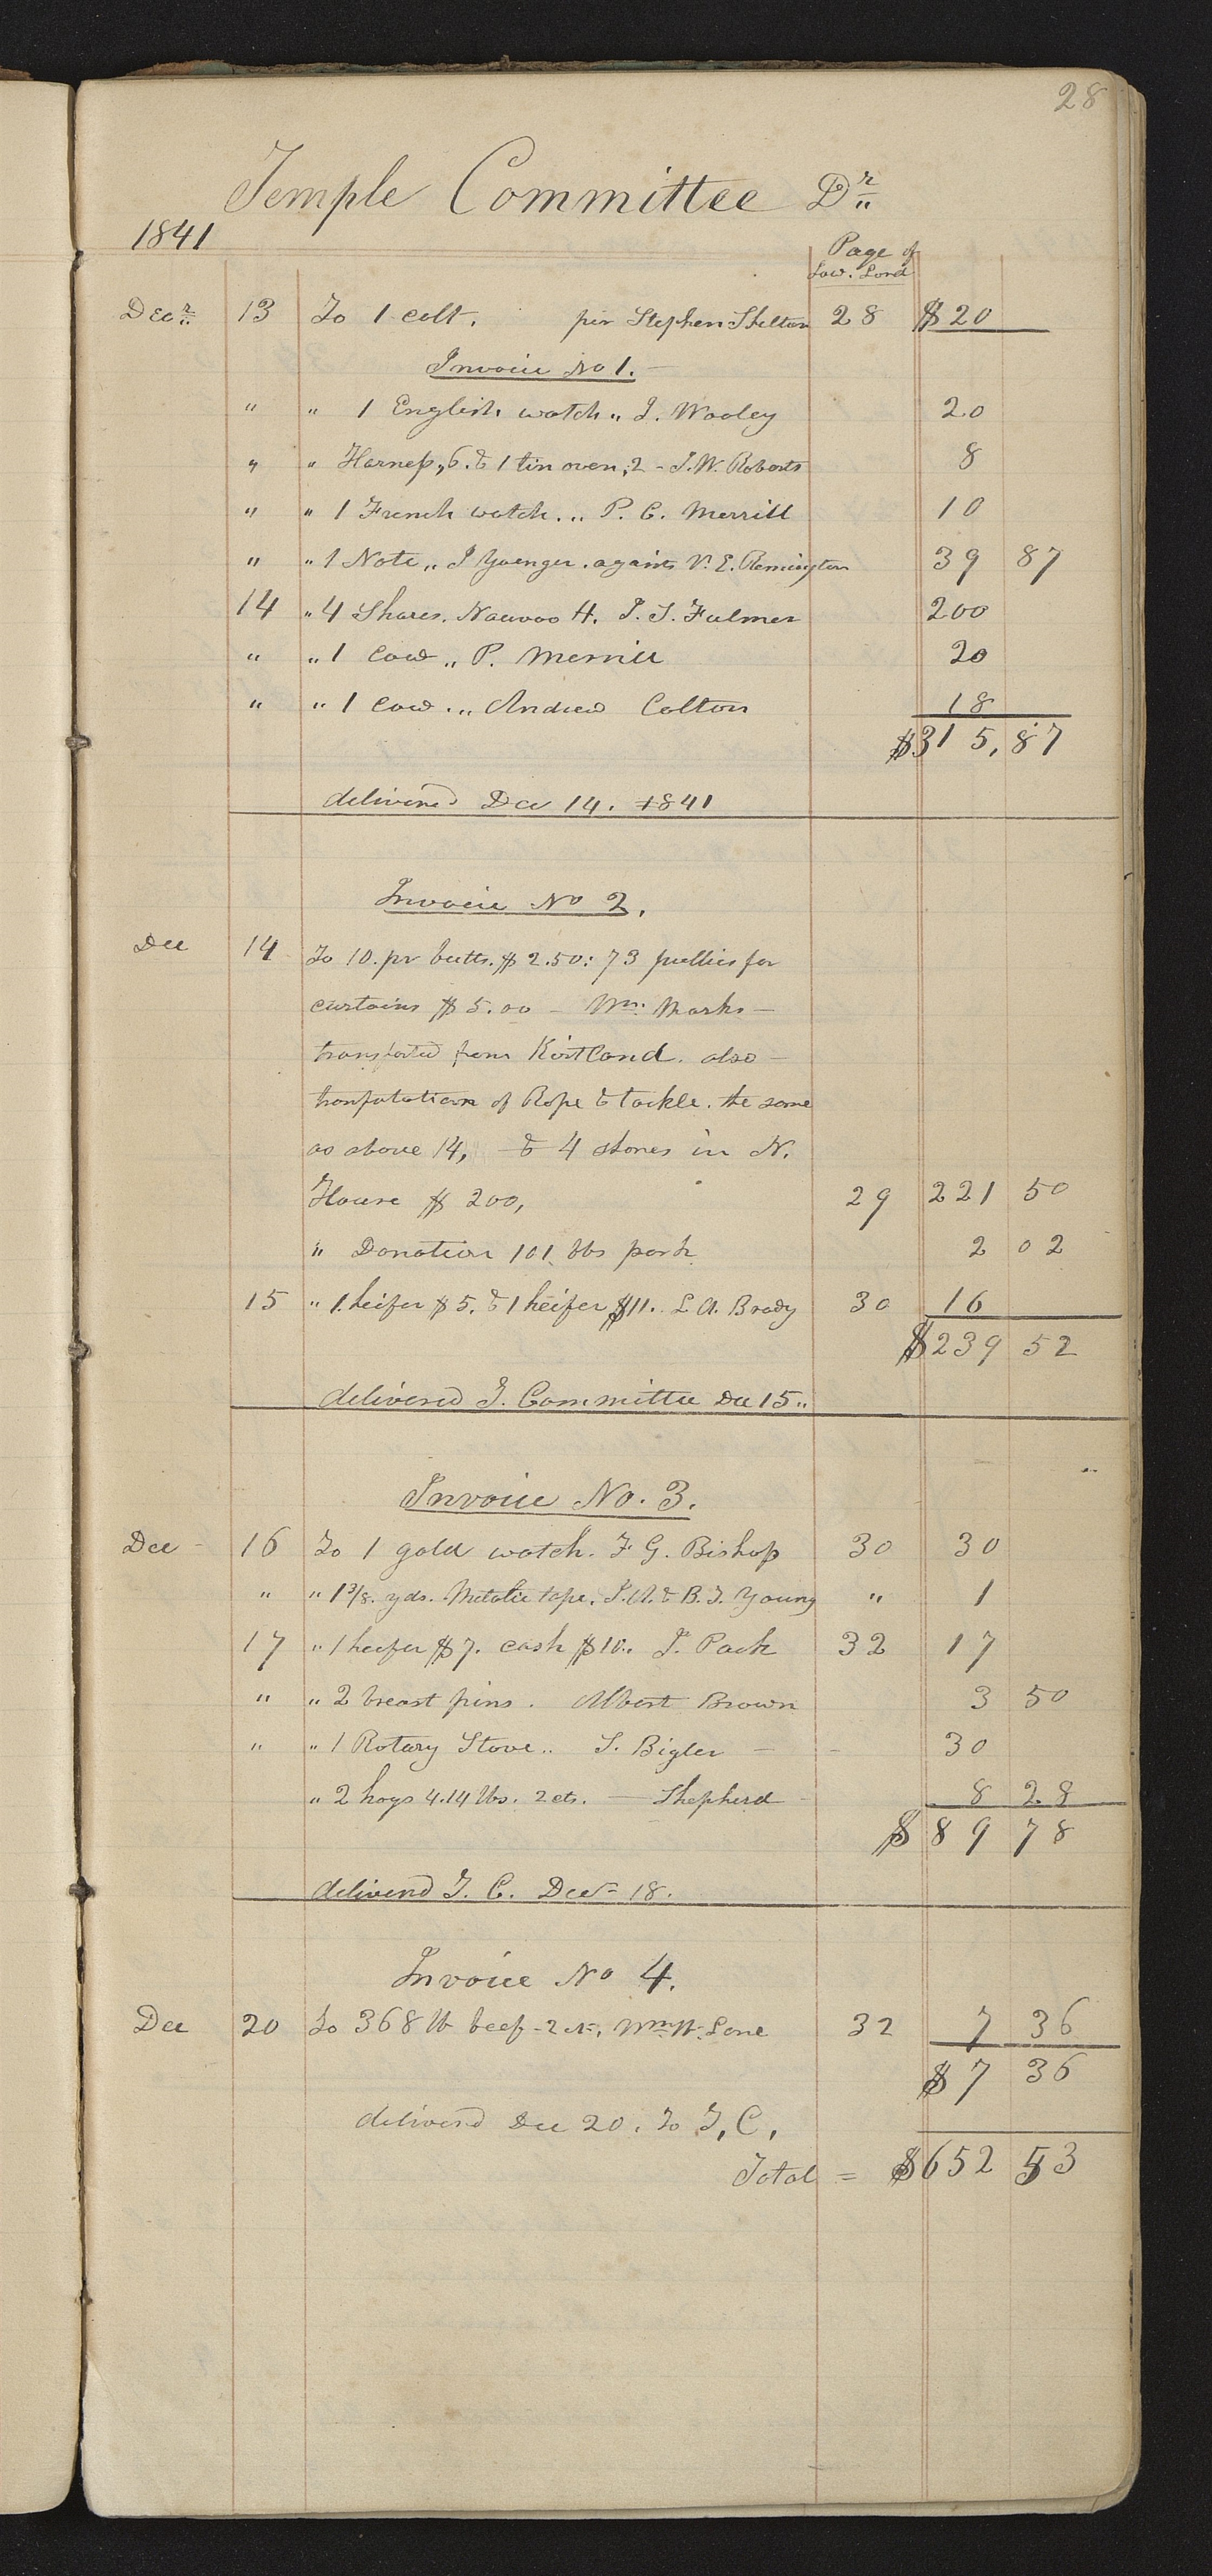 28
Temple Committee Dr
1841
Page of
Law. Lord
Decr 13 To 1 colt. per Stephen Shelton 28 $20
Invoice No 1.
" " 1 English watch " J. Wooley 20
" " Harness, 6. & 1 tin oven, 2 - J. W. Roberts 8
" " 1 French watch. " P. C. Merrill 10
" " 1 Note " J Yoenger. againts V. E. Remington 39 87
14 " 4 Shares. Nauvoo H. J. S. Fulmer 200
" " 1 Cow " P. Merrill 20
" " 1 Cow. " Andrew Colton 18
$315,87
delivered Dec 14. 1841
Invoice No 2.
Dec 14 To 10. pr butts. $2.50: 73 pullies for
curtains $5.00 - Wm. Marks -
transported from Kirtland. also -
of Rope & tackle. the same
as above 14, & 4 shares in N.
House $200, 29 221 50
" Donation 101 lbs pork 2 02
15 " 1 heifer $5. & 1 heifer $11. L A. Brady 30 16
$239 52
delivered T. Committee Dec 15"
Invoice No. 3.
Dec - 16 To 1 gold watch. F G. Bishop 30 30
" " 1 3/8. yds. Metalic tape. J. A. & B. J. Young " 1
17 " 1 heifer $7. cash $10" J. Pack 32 17
" " 2 breast pins. Albert Brown 3 50
" " 1 Rotary Stove " S. Bigler - - 30
" 2 hogs 4.14 lbs. 2 cts. - Shepherd - 8 28
$89 78
deliverd T. C. Decr 18.
Invoice No 4.
Dec 20 To 368 lb beef - 2 cts, Wm W. Lane 32 7 36
$7 36
deliverd Dec 20. To T, C,
Total = $652 53